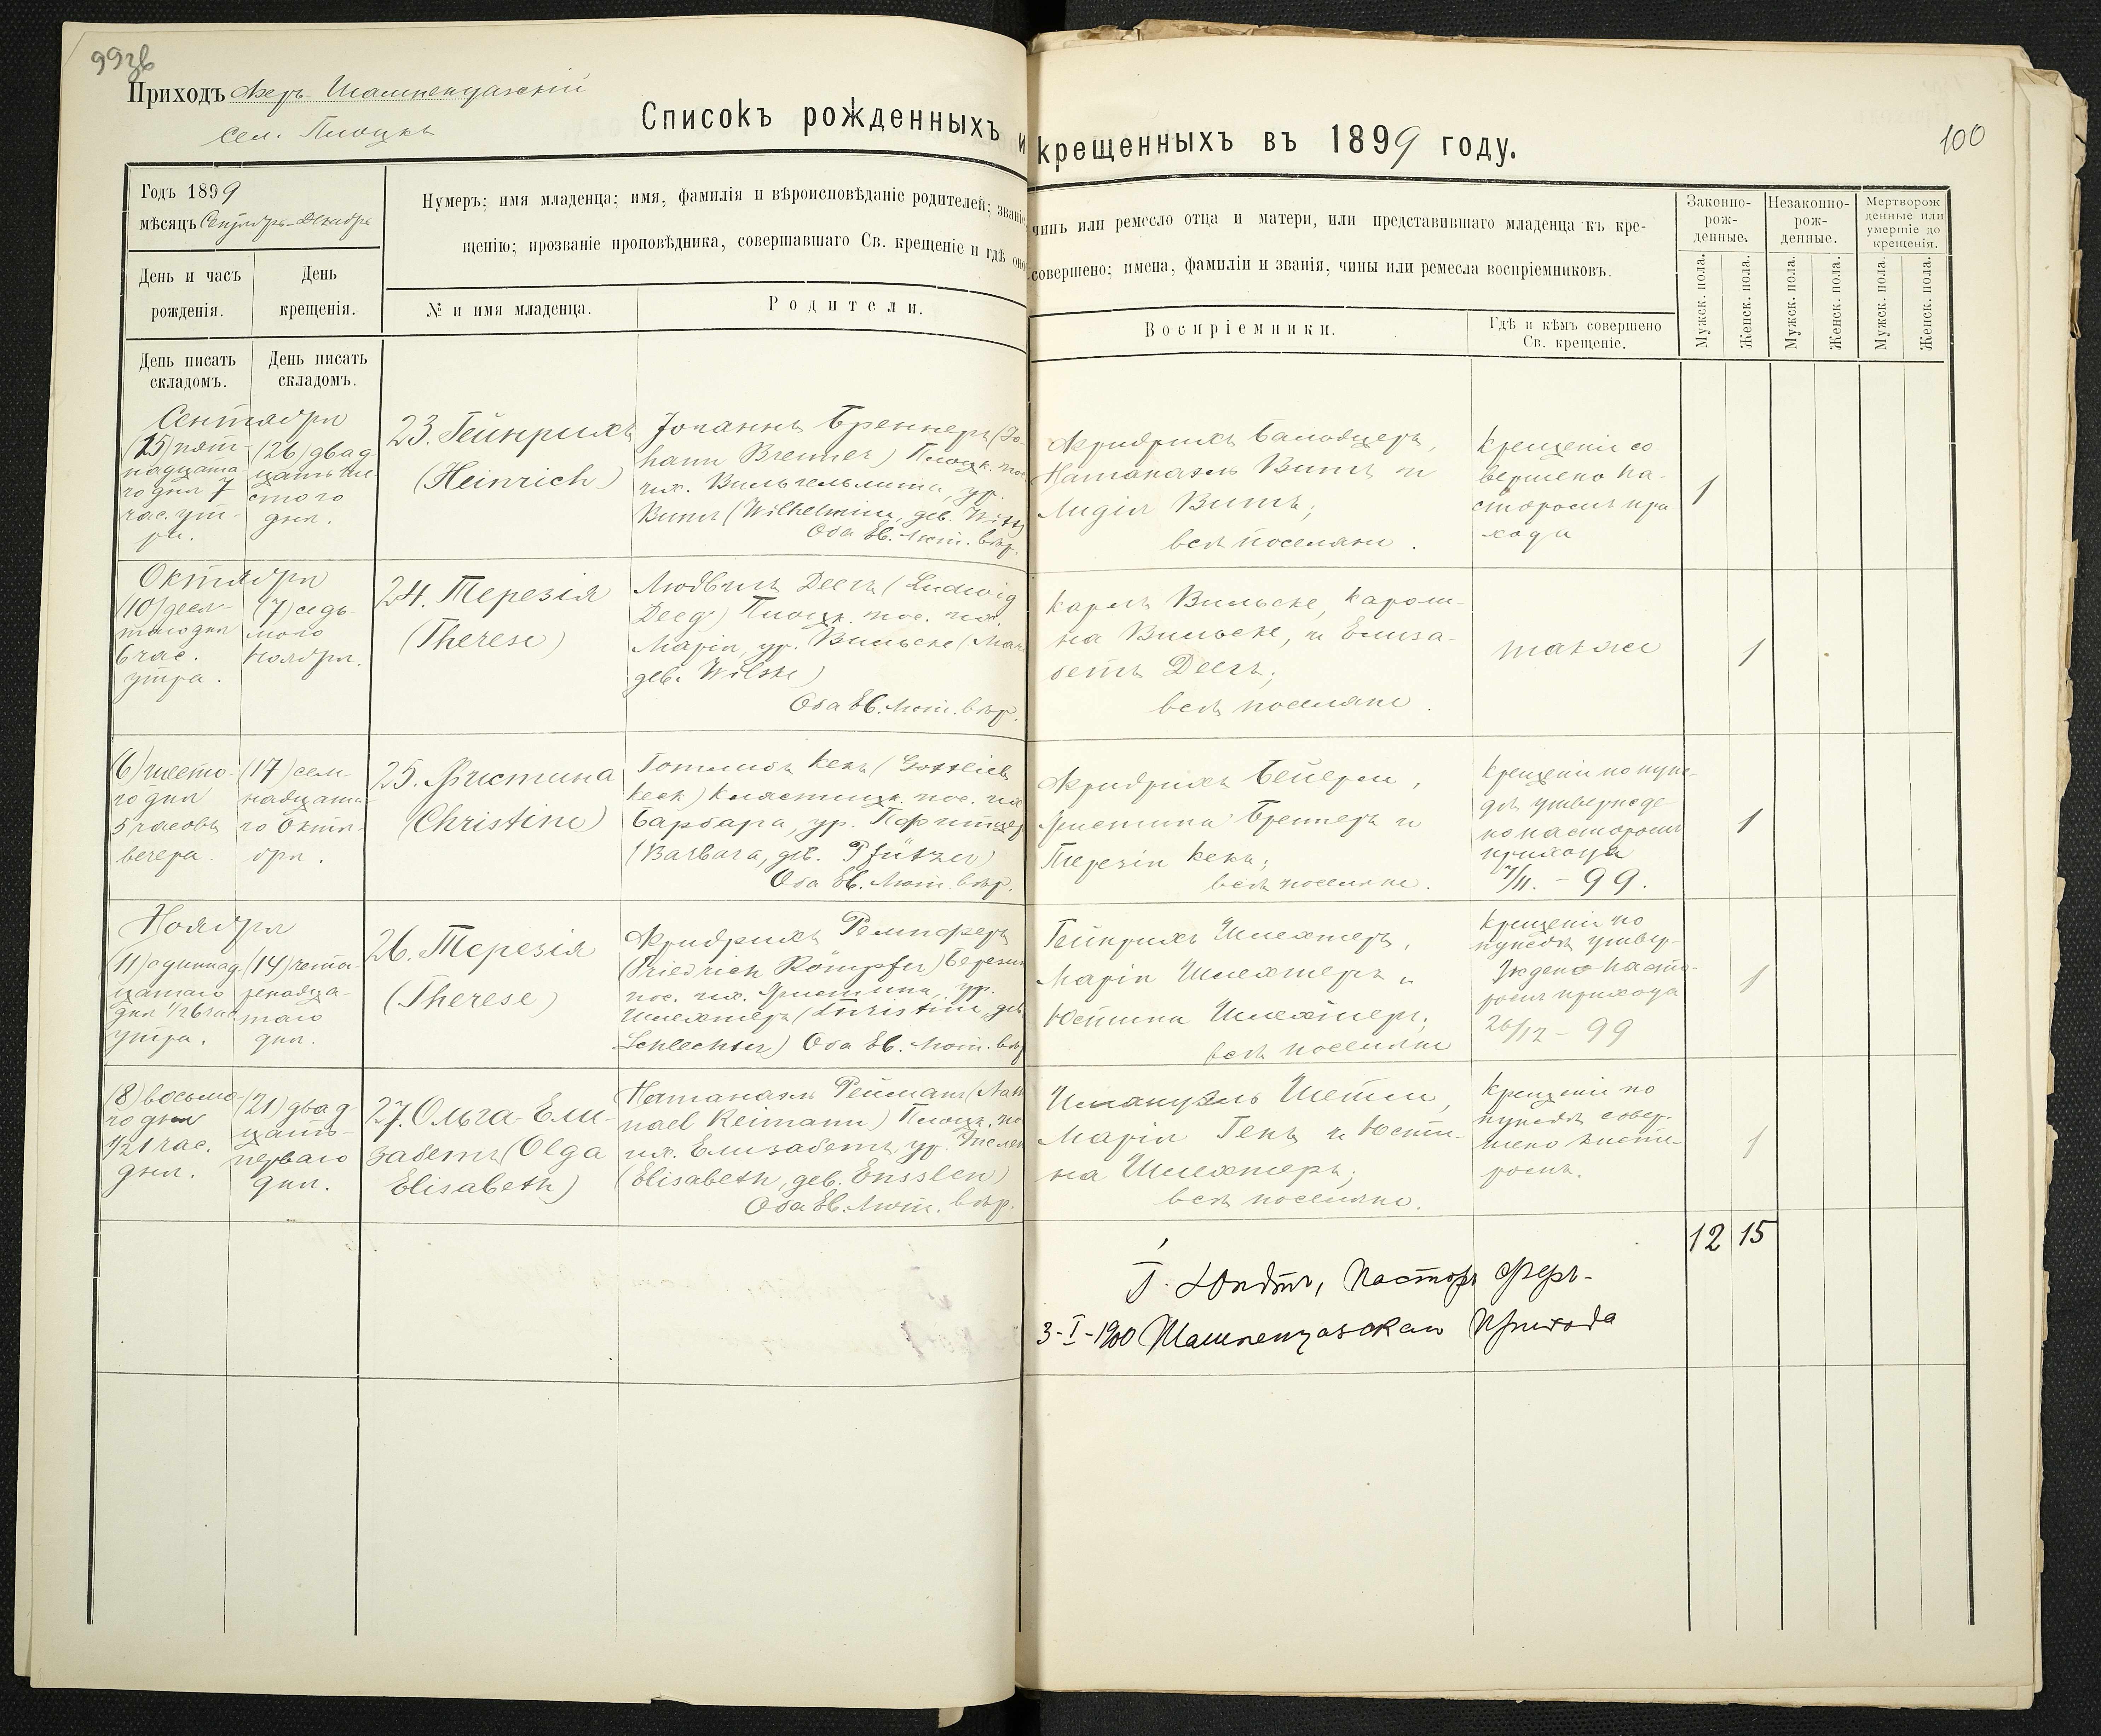 99зв
Приходъ Феръ Шампенуазскій
сел. Плоцкъ
100
Списокъ рожденныхъ и крещенныхъ въ 1899 году.
Годъ 1899
мѣсяцъ Сентябрь-Декабрь
День и часъ рожденія.
День крещенія.
Нумеръ; имя младенца; имя, фамилія и вѣроисповѣданіе родителей; званіе
чинъ или ремесло отца и матери, или представившаго младенца къ кре-
щенію; прозваніе проповѣдника, совершавшаго Св. крещеніе и гдѣ оно
совершено; имена, фамиліи и званія, чины или ремесла воспріемниковъ.
№ и имя младенца.
Родители.
Воспріемники.
Гдѣ и кѣмъ совершено
Св. крещеніе.
Законно-
рож-
денные.
Незаконно-
рож-
денные.
Мертворож
денные или
умершіе до
крещенія.
Мужск. пола.
Женск. пола.
Мужск. пола.
Женск. пола.
Мужск. пола.
Женск. пола.
День писать
складомъ.
День писать
складомъ.
Сентября
(15) пят-
надцата-
го дня 7
час. ут-
ра.
(26) двад-
цать ше-
стого
дня.
23. Гейнрихъ
(Heinrich)
Іоганнъ Бреннеръ (Jo-
hann Brenner) Плоцк. пос.
их. Вильгельмина, ур.
Витъ (Wilhelmine, geb. Witt)
Оба Ев. Лют. вѣр.
Фридрихъ
Натанаэль Витъ и
Лидія Витъ;
всѣ поселяне.
Крещеніе со
вершено па-
сторомъ при
хода
1
Октября
(10) деся-
таго дня
6 час.
утра.
(7) седь-
мого
Ноября.
24. Терезія
(Therese)
Людвигъ Деегъ (Ludwig
Deeg) Плоцк. пос. их.
Марія, ур. Вильске (Mar
geb. Wilske)
Оба Ев. Лют. вѣр.
Карлъ Вильске, Кароли-
на Вильске, и Елиза-
бетъ Деегъ;
всѣ поселяне.
также
1
(6) шесто-
го дня
5 часовъ
вечера.
(17) сем-
надцата-
го Октя-
бря.
25. Христина
(Christine)
Готлибъ Кекъ (Gottlieb
Keck) Кластицк. пос. их
Барбара, ур. Пфитцеръ
(Barbara, geb. Pfützer)
Оба Ев. Лют. вѣр.
Фридрихъ Бейерле,
Христина Бреннеръ и
Терезія Кекъ;
всѣ поселяне.
Крещеніе по нуж-
дѣ утвержде-
но пасторомъ
прихода
7/11. - 99.
1
Ноября
(11) одиннад
цатаго
дня 1/2 6 час
утра.
(14) четы-
рнадца-
таго
дня.
26. Терезія
(Therese)
Фридрихъ Ремпферъ
(Friedrich Römpfer) Березин
пос. их. Христина, ур.
Шлехтеръ (Christine, geb
Schlechter) Оба Ев. Лют. вѣр
Гейнрихъ Шлехтеръ,
Марія Шлехтеръ и
Юстина Шлехтеръ;
всѣ поселяне
Крещеніе по
нуждѣ утвер-
ждено Пасто-
ромъ прихода
26/12 - 99
1
(8) восьмо-
го дня
1/2 1 час.
дня.
(21) двад-
цать
перваго
дня.
27. Ольга-Ели-
забетъ (Olga
Elisabeth)
Натанаэлъ Рейманъ (Nath
nael Reimann) Плоцк. по
их. Елизабетъ, ур. Энслен
(Elisabeth, geb. Ensslen)
Оба Ев. Лют. вѣр.
Имануэль Шетле,
Марія Генъ и Юсти-
на Шлехтеръ;
всѣ поселяне.
Крещеніе по
нуждѣ совер-
шено
ромъ.
1
12 15
Пасторъ Феръ-
3-I-1900 Шампенуазскаго Прихода